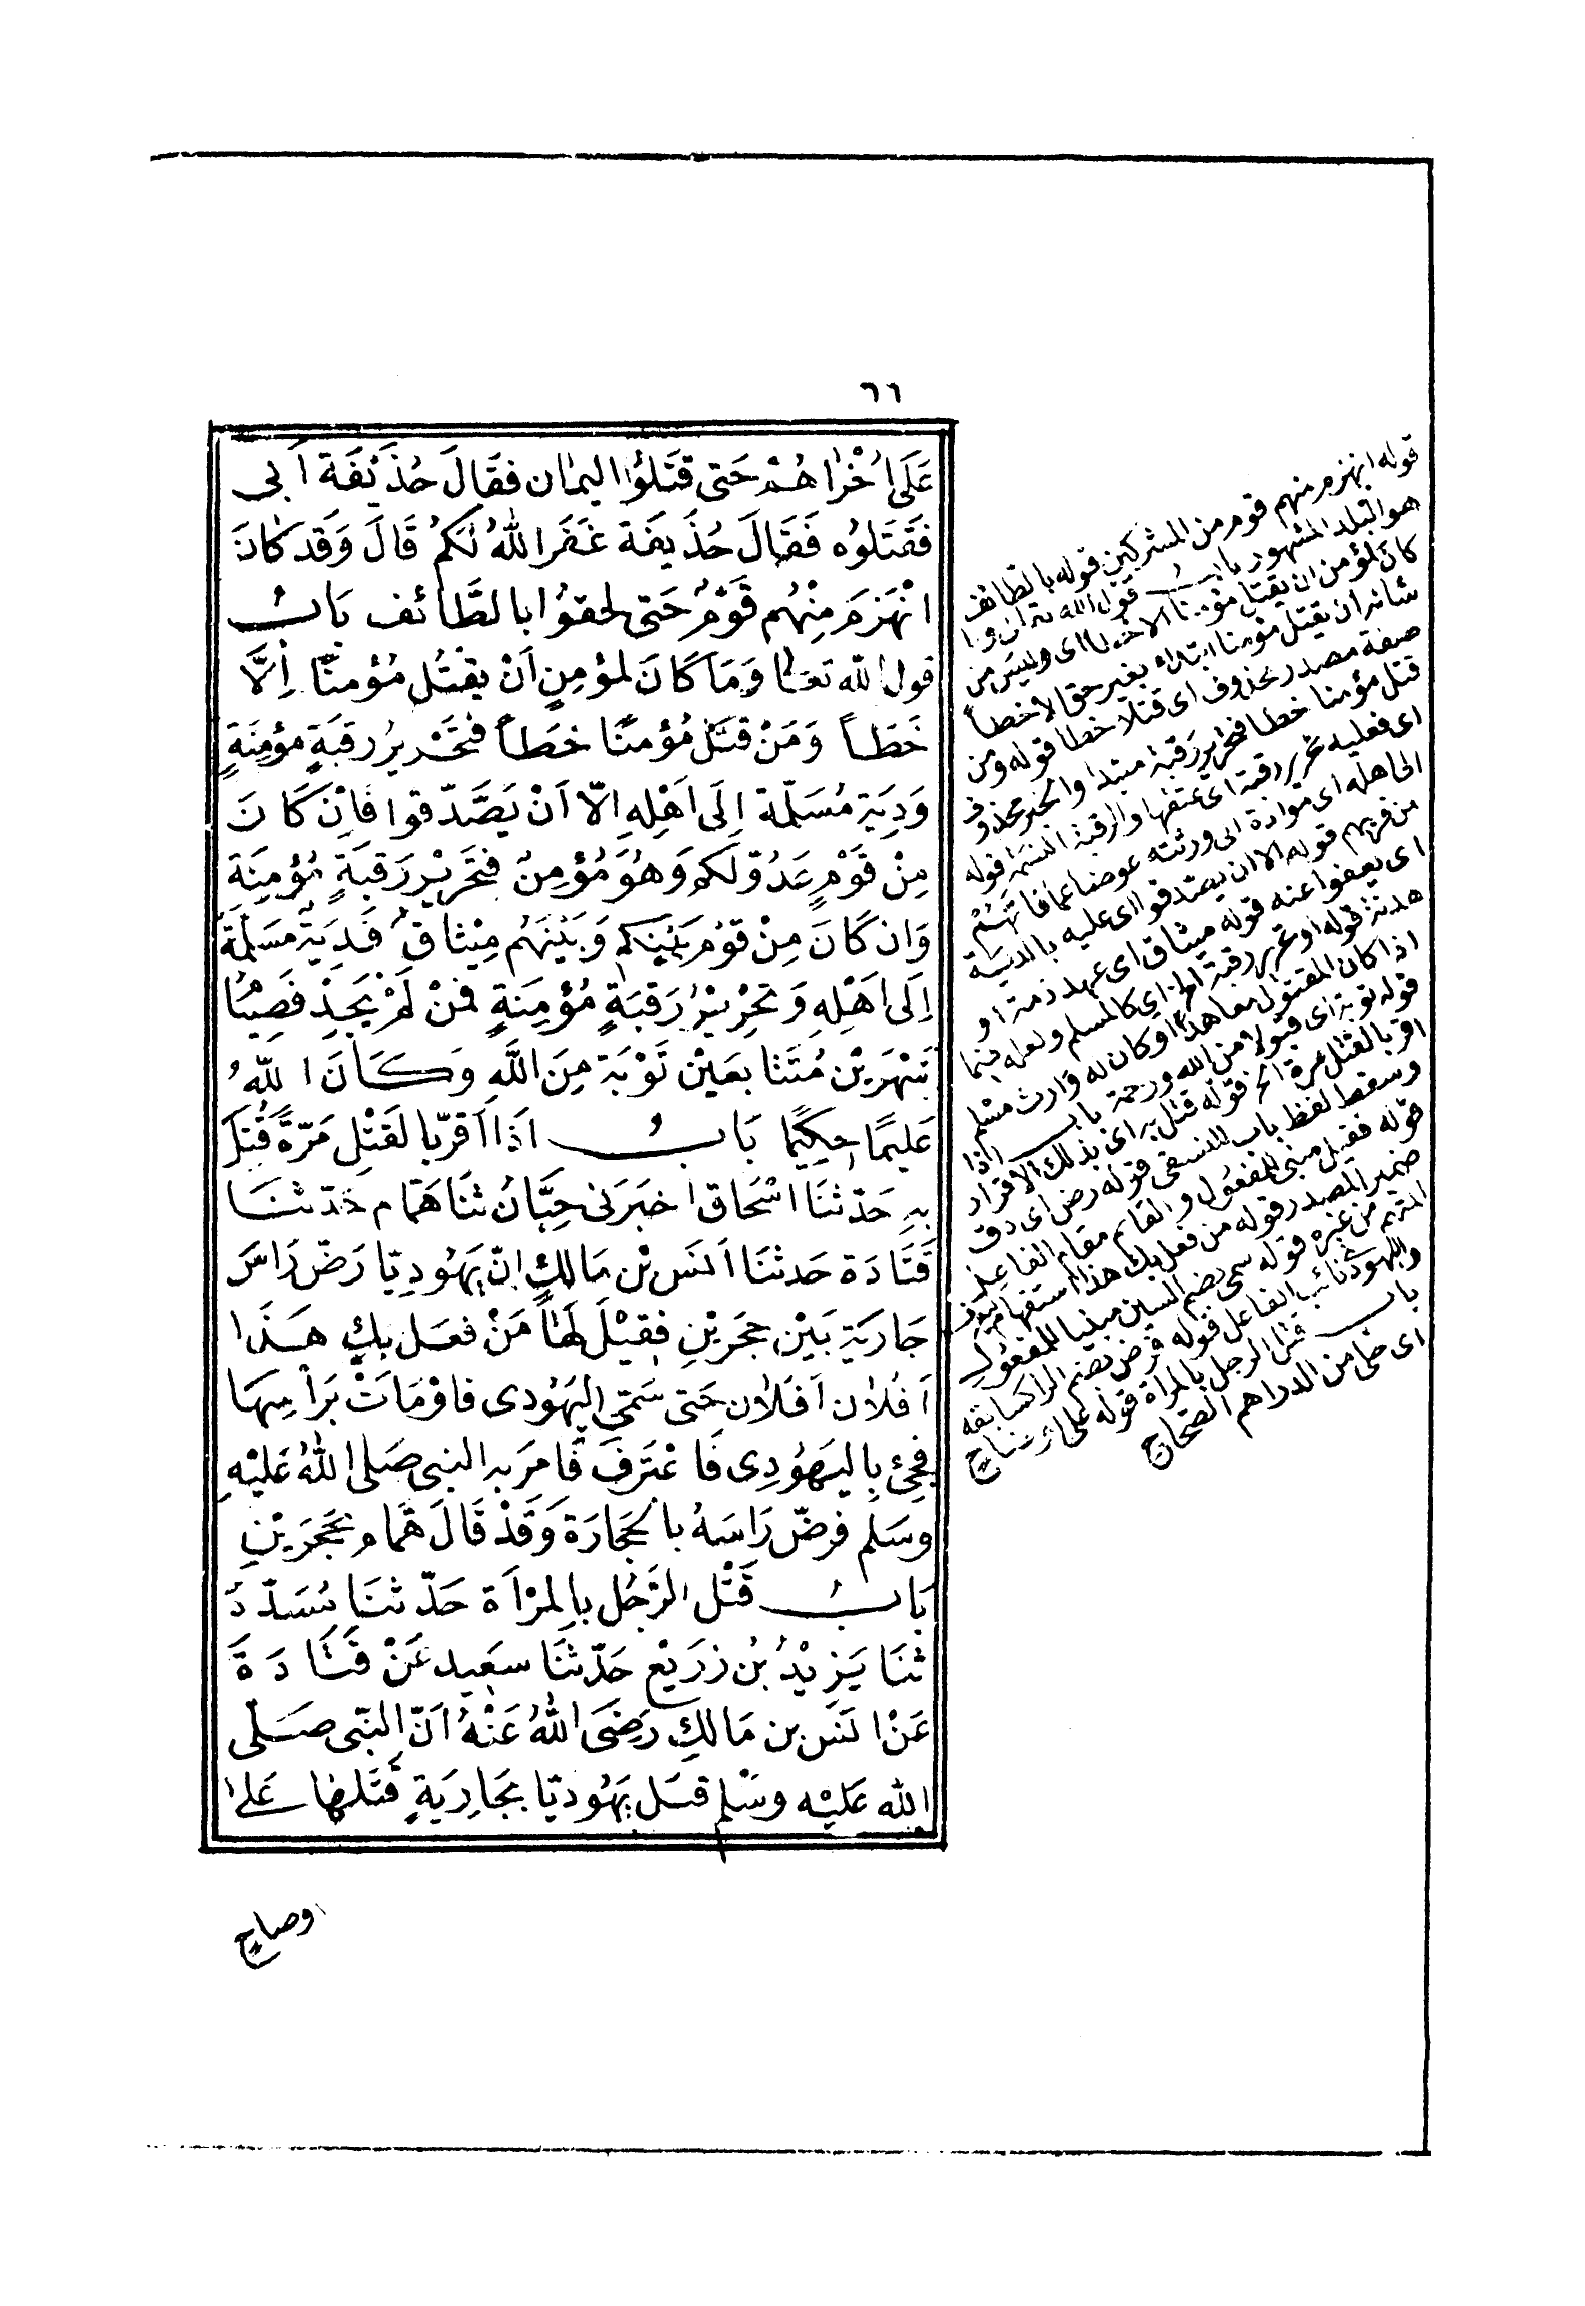 ٦٦
عَلَى اُخْرٰاهُمْ حَتى قتَلُوُا اليمٰان فقَالَ حُذَيْفَة اَبى
فقَتَلوُه فَقالَ حُذَيفَة غَفَرَ اللهُ لكمُ قَالَ وَقَد كانَ
انْهَزمَ مِنْهُم قَوْمٌ حَتى لحقوُا بالطَّائف بَابُ
قول الله تعَا وَمَا كَانَ لمؤمِنٍ اَنْ يقْتُل مُؤمنًا اِلَّا
خَطَاً وَمَنْ قتَلْ مُؤمنًا خطَاً فتَحْريرُ رقبَةٍ مؤمِنَةٍ
وَدِيَة مُسَلّمة اِلَى اَهْلِهِ الّا اَنْ يَصَّدّقوا فَاِنْ كَانَ
مِنْ قَوْمٍ عَدُوّ لَكم وَهُوَ مُؤمِنٌ فتَحريْر رَقبَةٍ مُؤمِنَةٍ
وَان كَانَ مِنْ قوْم بَيْنَكم وَبَيْنَهُم مِيْثاق فَدِيَة مسَلّمَة
اِلَى اَهْلِهِ وَتحْرِيْرُ رَقبَةٍ مُؤمِنَةٍ فمنْ لَمْ يَجِدْ فَصِيَامُ
شهرَيْن مُتَتابعَيْن تَوْبَة مِنَ اللَّهِ وَكَانَ اللّهُ
عَليمًا حَكِيمًا بَابُ اذَا اَقرّ بالقَتْلِ مَرّةً قُتِلَ
بهِ حَدّثنَا اسْحَاق اخبَرَنى حِبَّانُ ثنَا هَمّام حَدّثنَا
قَتَادَة حَدثنَا انَس بْن مَالكٍ انّ يَهُودِيّا رَضّ رَاسَ
جَاريَةٍ بَيْن حَجَريْنِ فقِيْلَ لهَا مَنْ فعَل بكِ هَذَا
اَفلَان اَفَلَان حَتى سَمّى اليَهُودى فاوْمَاَتْ برَاْسِهَا
فجئ بِاليَهُودِى فَاعْتَرَفَ فَامرَ به النبى صَلى اللهُ عَلَيْهِ
وسَلم فرضّ رَاسَهُ بالحجَارَة وَقَدْ قَالَ همَّام بحَجَرَيْنِ
بَابُ قَتْل الرَّجُل باِلمرْاَة حَدّثنَا مُسَدّدُ
ثنَا يَزيْدُ بْن زرَيْع حَدّثنَا سعَيد عَنْ قَتَادَةَ
عَنْ انَس بن مَالكِ رَضِىَ اللهُ عَنْهُ اَنّ النبّى صَلّى
الله عَليْه وسَلم قتَل يَهُوديّا بجَارِيَةٍ قَتَلهَا عَلى
اوضاح
قوله انهزم منهم قوم من المشركين قوله بالطائف
هو البلد المشهور باب قول الله تعا وما
كان لمؤمن ان يقتل مؤمنا الا خطا اى وليس من
شانه ان يقتل مؤمنا ابتداء بغير حق الا خطا
صفة مصدر محذوف اى قتلا خطا قوله ومن
قتل مؤمنا خطا فتحرير رقبة مبتدا والخبر محذوف
اى فعليه تحرير رقبة اى عتقها والرقبة النسمة قوله
الى اهله اى موادة الى ورثته عوضا عما فاتهم
من قريبهم قوله الا ان يصدقوا اى عليه بالدية
اى يعفوا عنه قوله ميثاق اى عهد ذمة او
هدنة قوله او تحرير رقبة الخ اى كالمسلم ولعله فيما
اذا كان المقتول معاهدا او كان له وارث مسلم
قوله توبة اى قبولا من الله ورحمة باب اذا
اقر بالقتل مرة الخ قوله قتل به اى بذلك الاقرار
وسقط لفظ باب للنسفى قوله رض اى دق
قوله فقيل مبنى للمفعول والقائم مقام الفاعل
ضمير المصدر قوله من فعل بك هذا استفهام
المتهم من غيره قوله سمى بضم السين مبنيا للمفعول
واليهودى نائب الفاعل قوله فرض بضم الراء كسابقه
باب قتل الرجل بالمرأة قوله على اوضاح
اى حلى من الدراهم الصحاح